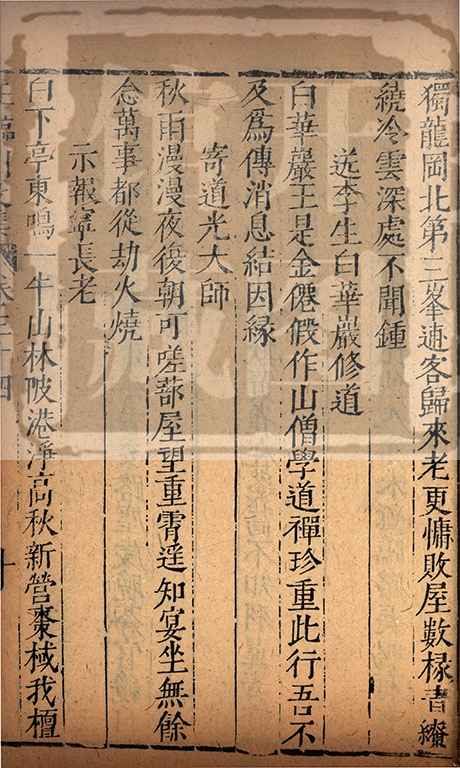 獨龍岡北第三峯逋客歸來老更慵敗屋數椽青繚
繞冷雲深處不聞鍾
送李生白華巖修道
白華巖王是金僊假作山僧學道禪珍重此行吾不
及爲傳消息結因緣
寄道光大師
秋雨漫漫夜復朝可嗟蔀屋望重霄遥知宴坐無餘
念萬事都從劫火燒
示報寧長老
白下亭東鳴一牛山林陂港淨高秋新營棗棫我檀
王臨川文集 卷三十四 十